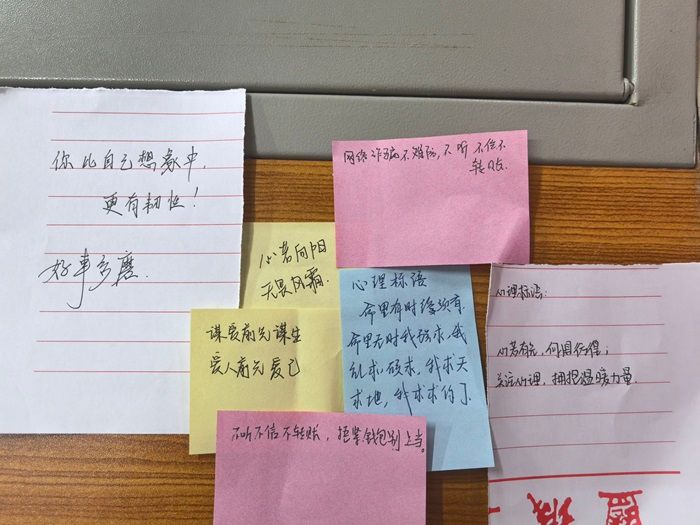 你比自己想象中,
更有韧性!
好事多磨.
网络诈骗不难防,不听不信不
转账.
心若向阳
无畏风霜.
谋爱前先谋生
爱人前先爱己
心理标语
命里有时终须有.
命里无时我强求,我
乱求,硕求,我求天
求地,我求求的了.
心理标语:
心若有光,何惧行程;
关注心理,拥抱温暖力量.
不听不信不转账,捂紧钱包别上当。